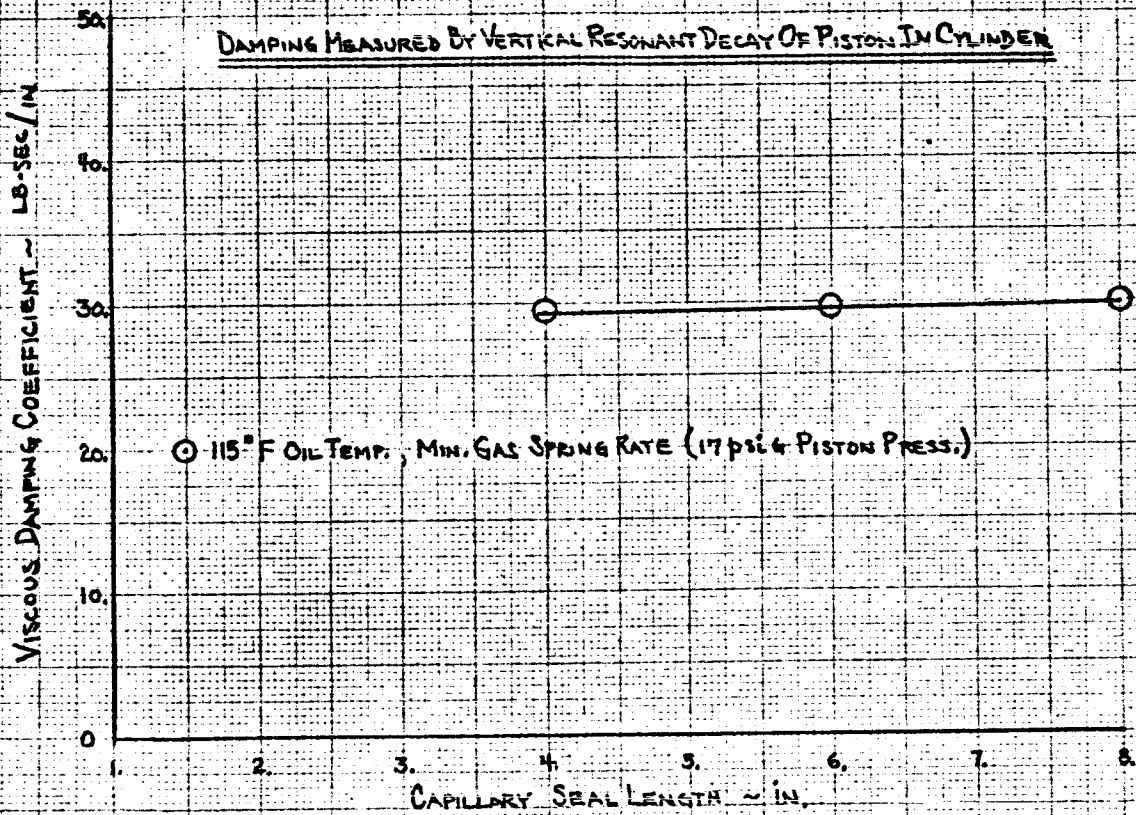 DAMPING MEASURED BY VERTICAL RESONANT DECAY OF PISTON IN CYLINDER
VISCOUS DAMPING COEFFICIENT ~ LB-SEC/IN
50.
40.
30.
20.
10.
0
115°F OIL TEMP., MIN. GAS SPRING RATE (17 psig PISTON PRESS.)
1. 2. 3. 4. 5. 6. 7. 8.
CAPILLARY SEAL LENGTH ~ IN.